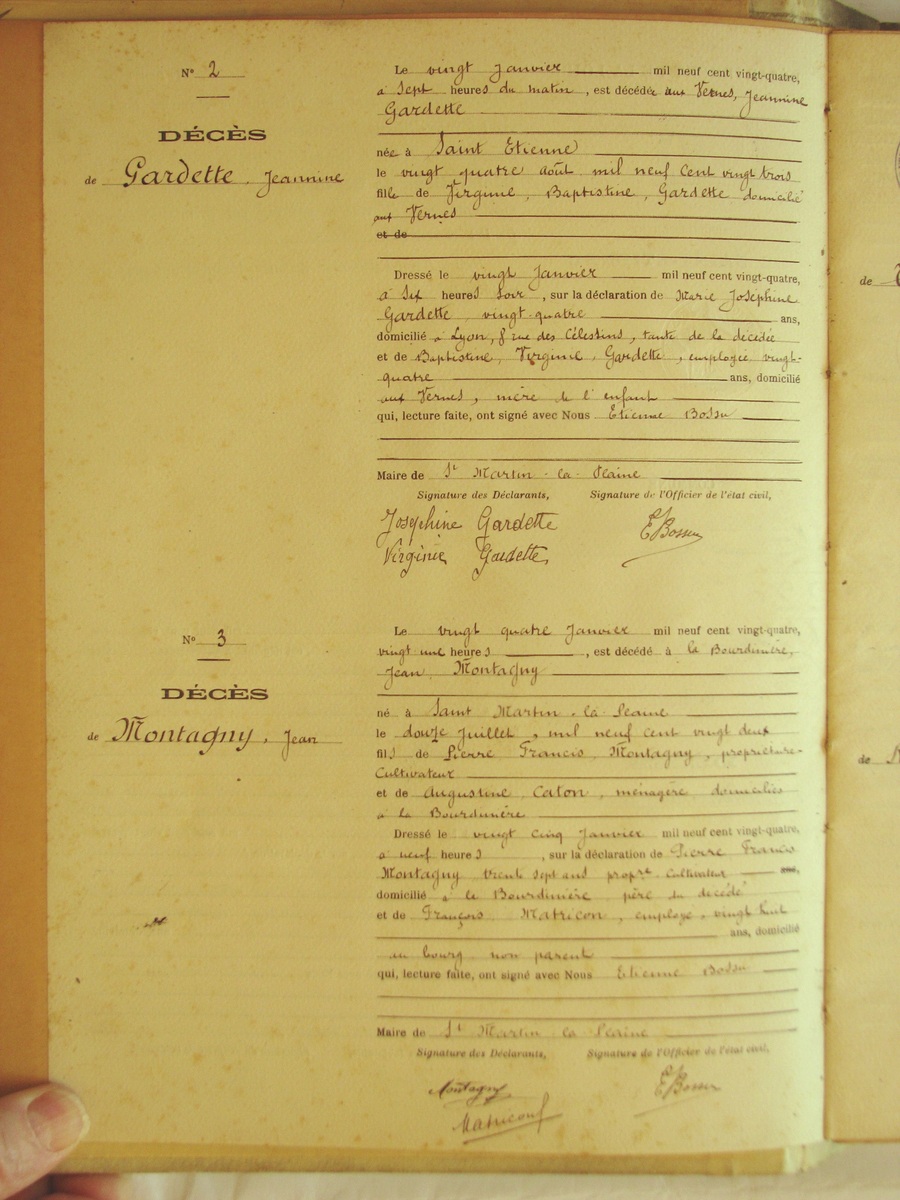 N° 2
DÉCÈS
de Gardette, Jeannine
Le vingt Janvier mil neuf cent vingt-quatre,
à Sept heures du matin, est décédée aux Vernes, Jeannine
Gardette
née à Saint Etienne
le vingt quatre août mil neuf cent vingt trois
fille de Virginie, Baptistine, Gardette domicilié
aux Vernes
et de
Dressé le vingt Janvier mil neuf cent vingt-quatre,
à Six heures soir, sur la déclaration de Marie Joséphine
Gardette vingt-quatre ans,
domicilié à Lyon, 8 rue des Célestins, tante de la décédée
et de Baptistine, Virginie, Gardette, employée vingt-
quatre ans, domicilié
aux Vernes, mère de l'enfant
qui, lecture faite, ont signé avec Nous Etienne Bossu
Maire de St Martin-la-Plaine
Signature des Déclarants, Signature de l'Officier de l'état civil,
Joséphine Gardette EBossu
Virginie Gardette
N° 3
DÉCÈS
de Montagny, Jean
Le vingt quatre Janvier mil neuf cent vingt-quatre,
vingt une heures, est décédé à la Bourdinière,
Jean Montagny
né à Saint Martin-la-Plaine
le douze Juillet, mil neuf cent vingt deux
fils de Pierre Francis Montagny, propriétaire-
Cultivateur
et de Augustine Caton, ménagère domiciliés
à la Bourdinière
Dressé le vingt cinq Janvier mil neuf cent vingt-quatre,
à neuf heures, sur la déclaration de Pierre Francis
Montagny trente sept ans propre-Cultivateur ans,
domicilié à la Bourdinière père du décédé
et de François Matricon, employé, vingt huit
ans, domicilié
au bourg non parent
qui, lecture faite, ont signé avec Nous Etienne Bossu
Maire de St Martin-la-Plaine
Signature des Déclarants, Signature de l'Officier de l'état civil,
Montagny EBossu
Matricon
de
de